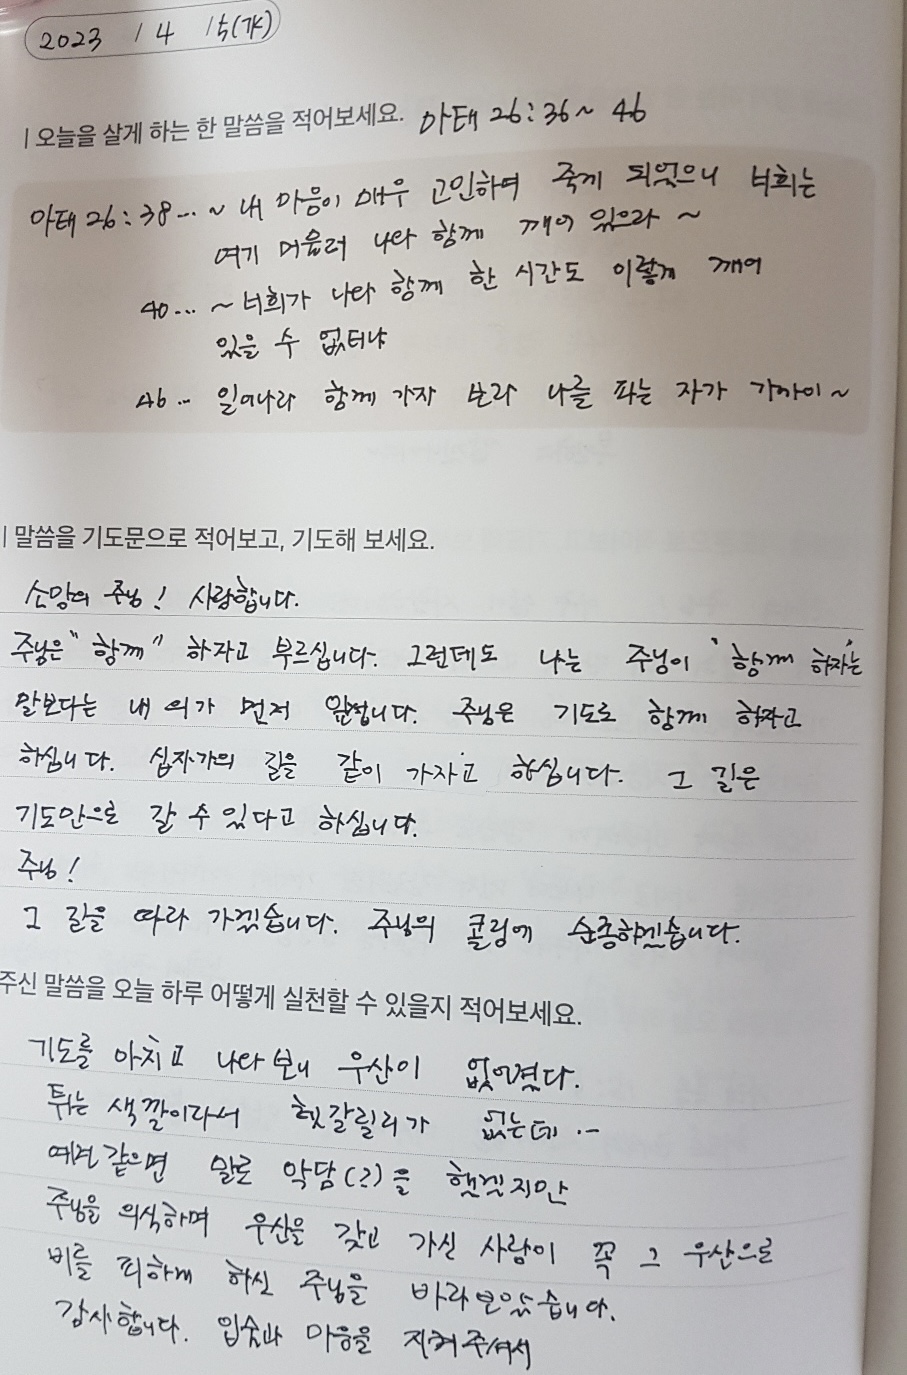 2023 / 4 / 5(수)
| 오늘을 살게 하는 한 말씀을 적어보세요. 마태 26:36~ 46
마태 26:38... ~ 내 마음이 매우 고민하여 죽게 되었으니 너희는
여기 머물러 나와 함께 깨어 있으라 ~
40... ~ 너희가 나와 함께 한 시간도 이렇게 깨어
있을 수 없더냐
46... 일어나라 함께 가자 보라 나를 파는 자가 가까이 ~
| 말씀을 기도문으로 적어보고, 기도해 보세요.
소망의 주님! 사랑합니다.
주님은 "함께" 하자고 부르십니다. 그런데도 나는 주님이 '함께 하자'는
말보다는 내 의가 먼저 앞섭니다. 주님은 기도로 함께 하자고
하십니다. 십자가의 길을 같이 가자고 하십니다. 그 길은
기도만으로 갈 수 있다고 하십니다.
주님!
그 길을 따라 가겠습니다. 주님의 콜링에 순종하겠습니다.
주신 말씀을 오늘 하루 어떻게 실천할 수 있을지 적어보세요.
기도를 마치고 나와 보니 우산이 없어졌다.
튀는 색깔이라서 헷갈릴리가 없는데 ..
예전같으면 말로 악담(?)을 했겠지만
주님을 의식하며 우산을 갖고 가신 사람이 꼭 그 우산으로
비를 피하게 하신 주님을 바라보았습니다.
감사합니다. 입술과 마음을 지켜주셔서